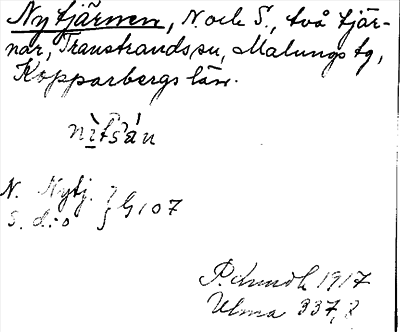 Nytjärnen, N. och S., två tjär-
nar, Transtrands sn, Malungs tg,
Kopparbergs län.
N. Nytj. } G 107
S. d:o
1917
Ulma 337,